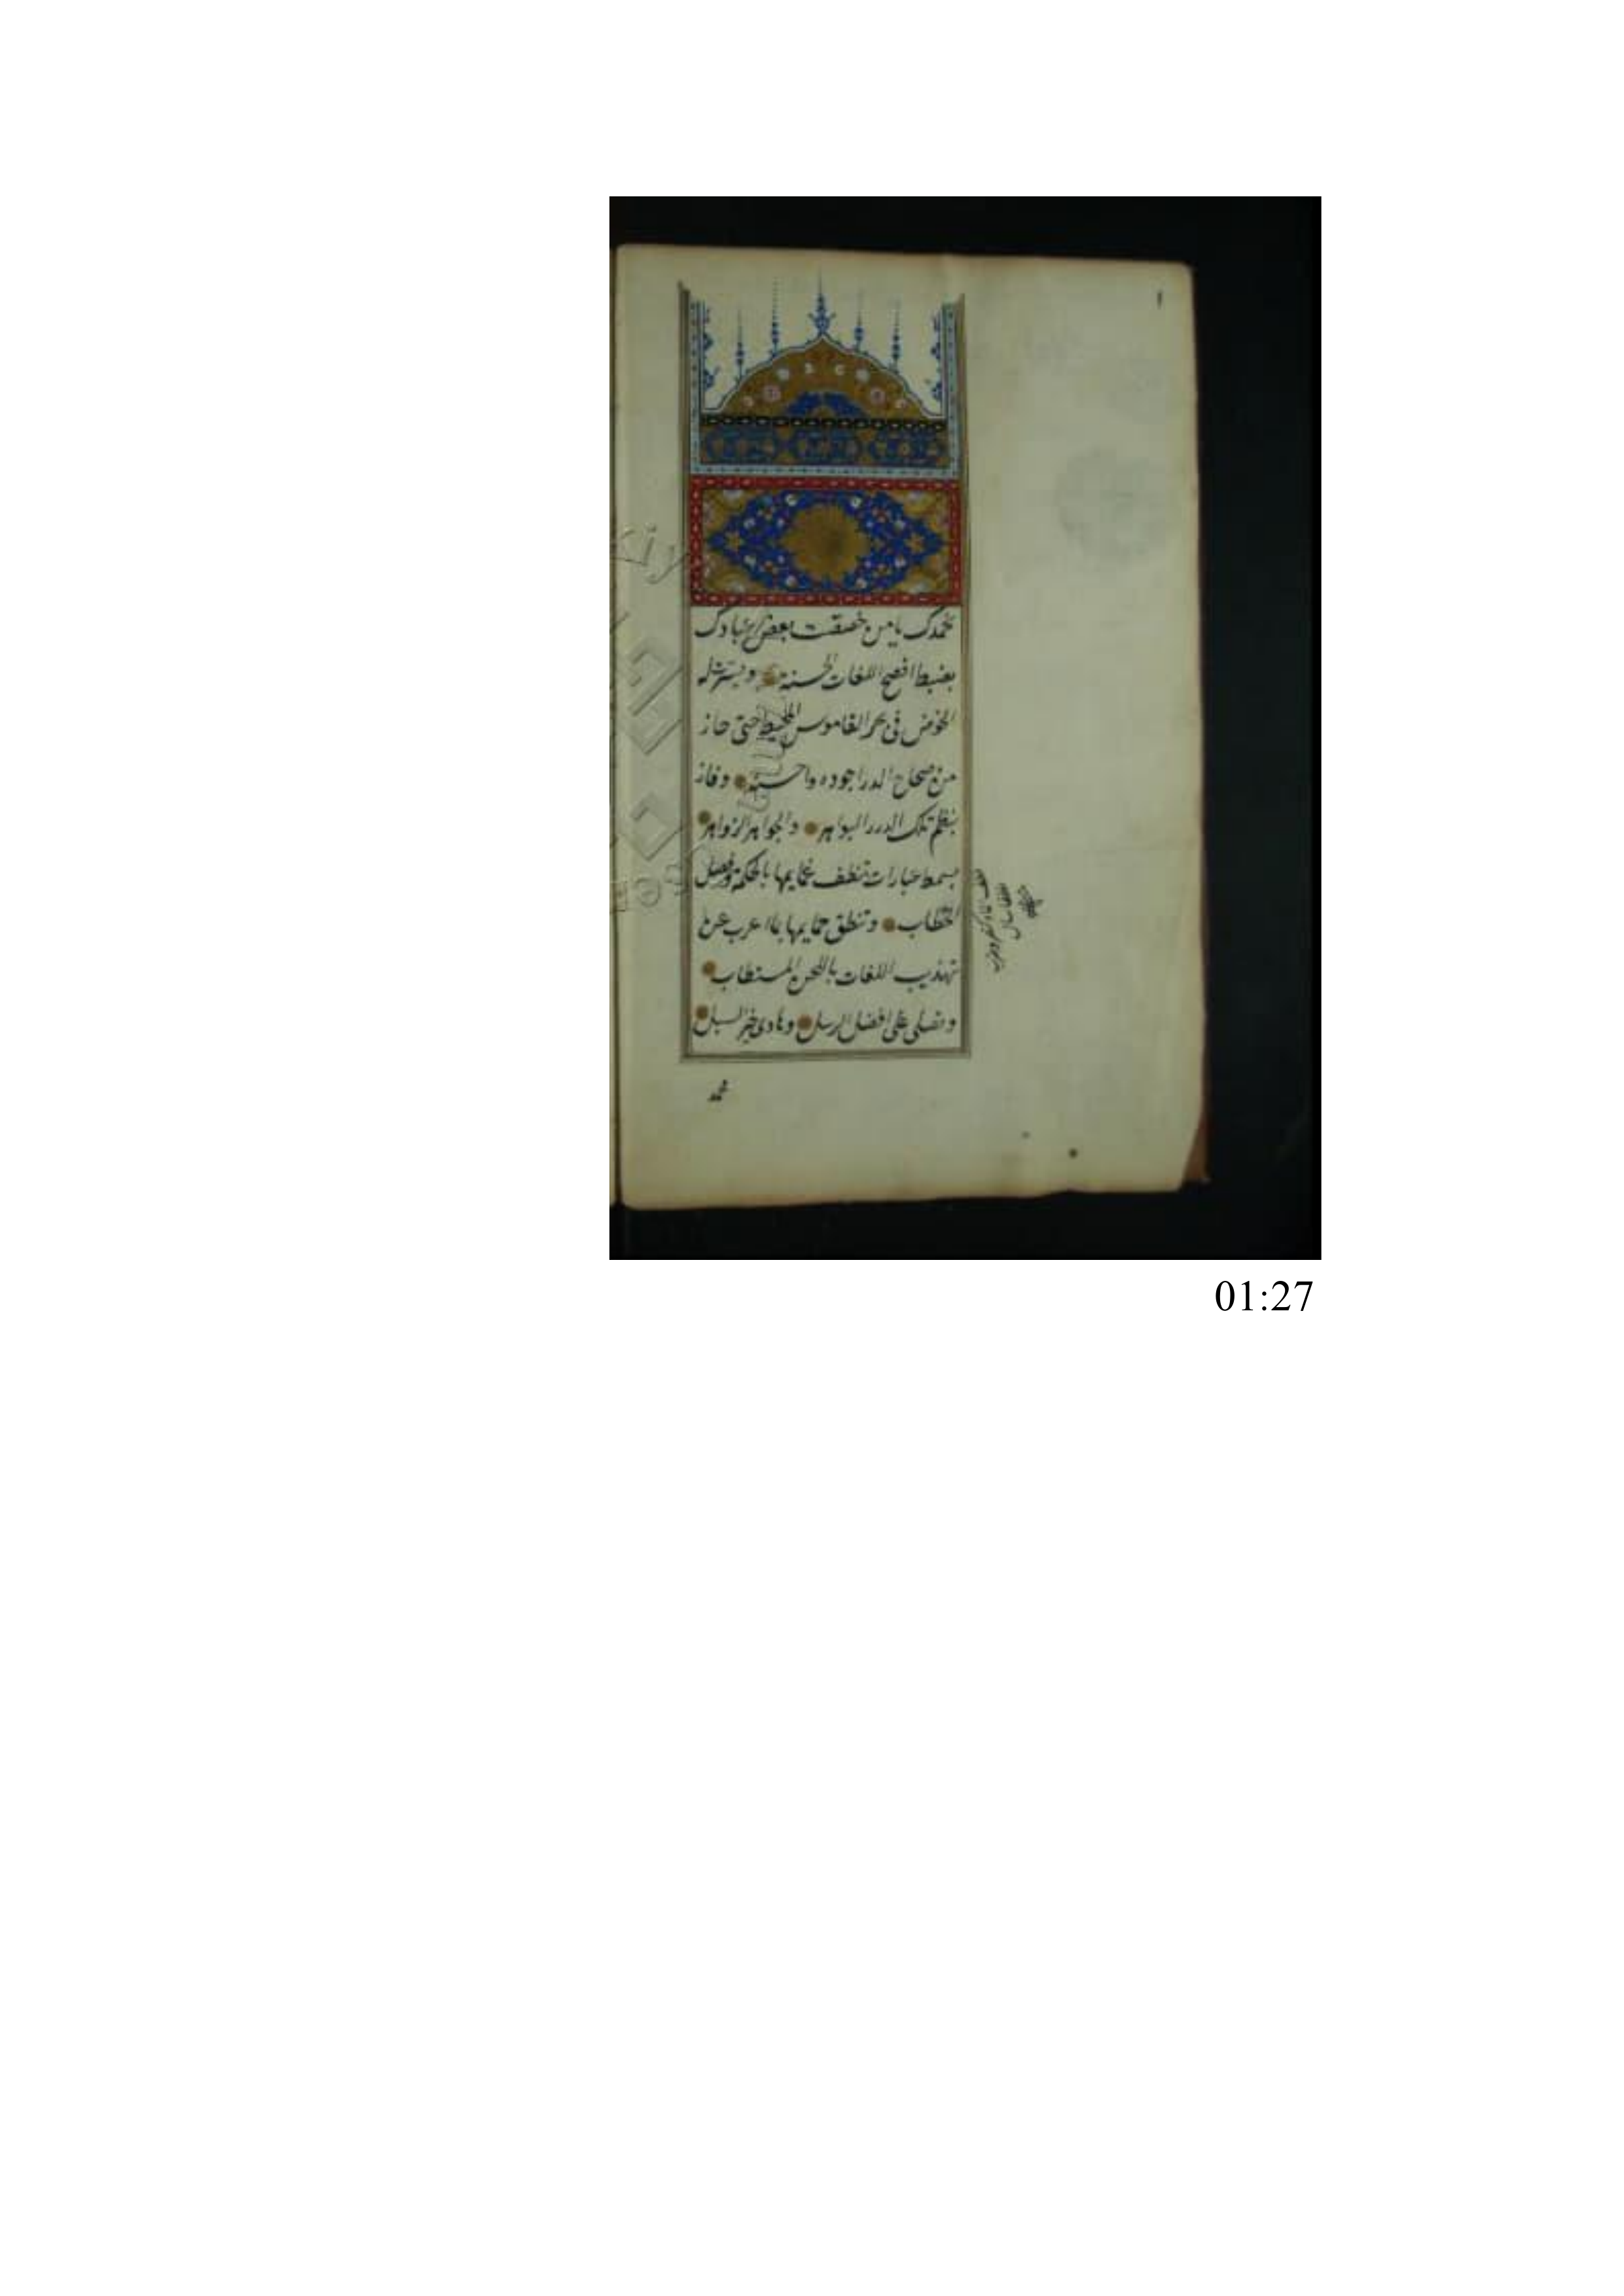 نحمدك يا من خصصت بعض عبادك
بضبط افصح اللغات الحسنة ويسرت له
الخوض فى بحر القاموس المحيط حتى حاز
من صحاح الدر اجوده واحسنه وفاز
بنظم تلك الدرر البواهر والجواهر الزواهر
بسمط عبارات بالحكمة وفصل
الخطاب وتنطق بما اعرب عن
تهذيب اللغات باللحن المستطاب
ونصلى على افضل الرسل وهادى خير السبل
محمد
01:27